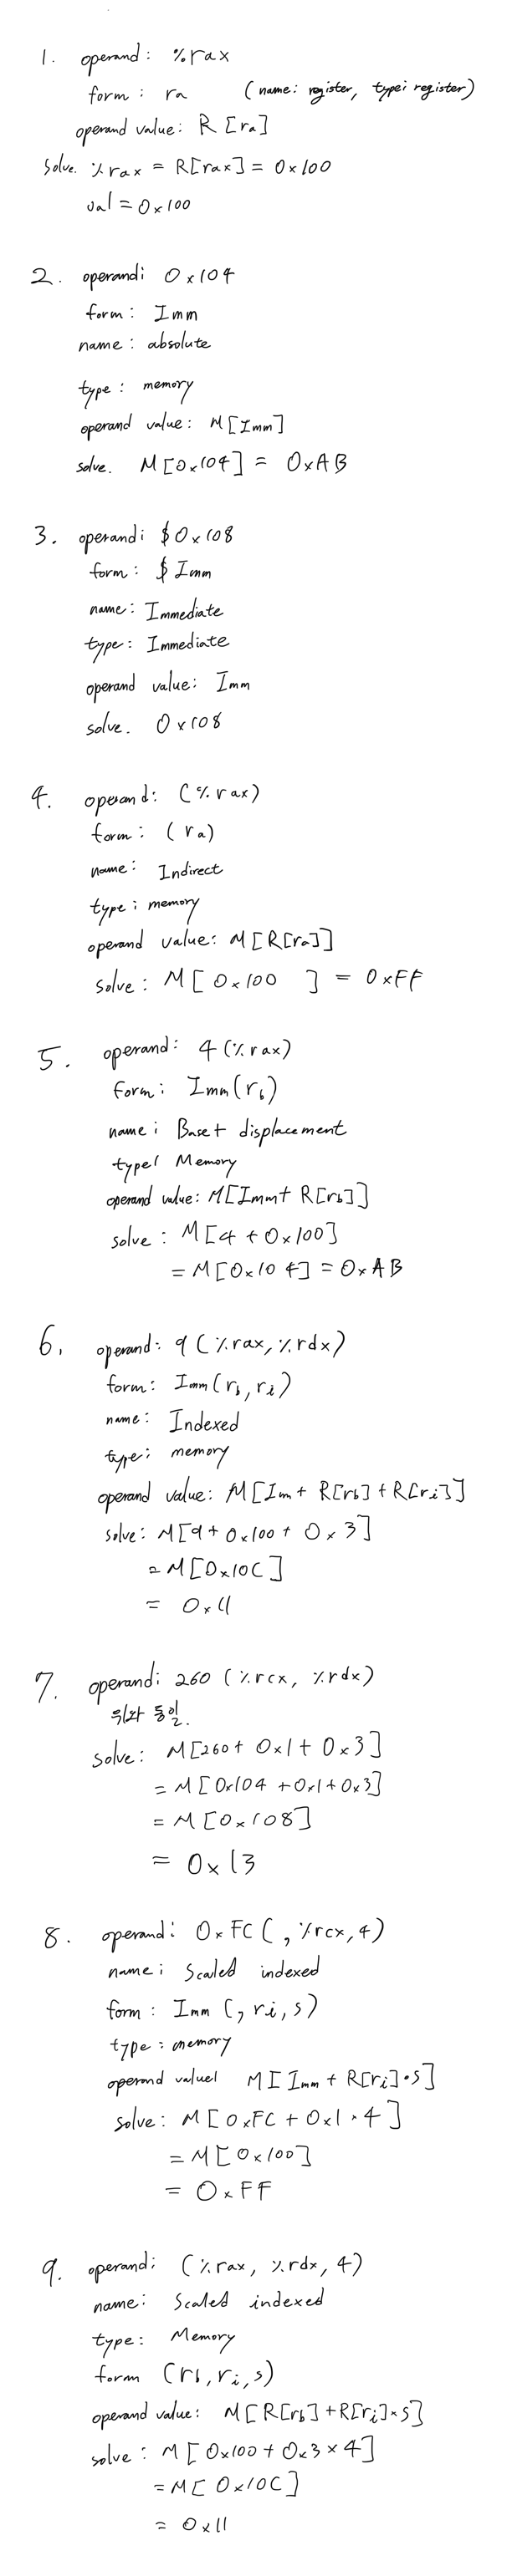 1. operand: %rax
form: ra (name: register, type: register)
operand value: R[ra]
solve. %rax = R[rax] = 0x100
val = 0x100
2. operand: 0x104
form: Imm
name: absolute
type: memory
operand value: M[Imm]
solve. M[0x104] = 0xAB
3. operand: $0x108
form: $Imm
name: Immediate
type: Immediate
operand value: Imm
solve. 0x108
4. operand: (%rax)
form: (ra)
name: Indirect
type: memory
operand value: M[R[ra]]
solve: M[0x100 ] = 0xFF
5. operand: 4(%rax)
form: Imm(rb)
name: Base+ displacement
type: Memory
operand value: M[Imm+ R[rb]]
solve: M[4 + 0x100]
= M[0x104] = 0xAB
6. operand: 9(%rax, %rdx)
form: Imm(rb, ri)
name: Indexed
type: memory
operand value: M[Im+ R[rb] + R[ri]]
solve: M[9+ 0x100+ 0x3]
= M[0x10C]
= 0x11
7. operand: 260 (%rcx, %rdx)
위와 동일.
solve: M[260+ 0x1+ 0x3]
= M[0x104 +0x1+0x3]
= M[0x108]
= 0x13
8. operand: 0xFC (, %rcx, 4)
name: Scaled indexed
form: Imm (, ri, s)
type: memory
operand value: M[Imm + R[ri]•s]
solve: M[0xFC + 0x1 • 4]
= M[0x100]
= 0xFF
9. operand: (%rax, %rdx, 4)
name: Scaled indexed
type: Memory
form (rb, ri, s)
operand value: M[R[rb] +R[ri]•s]
solve: M[0x100+ 0x3 × 4]
= M[0x10C]
= 0x11